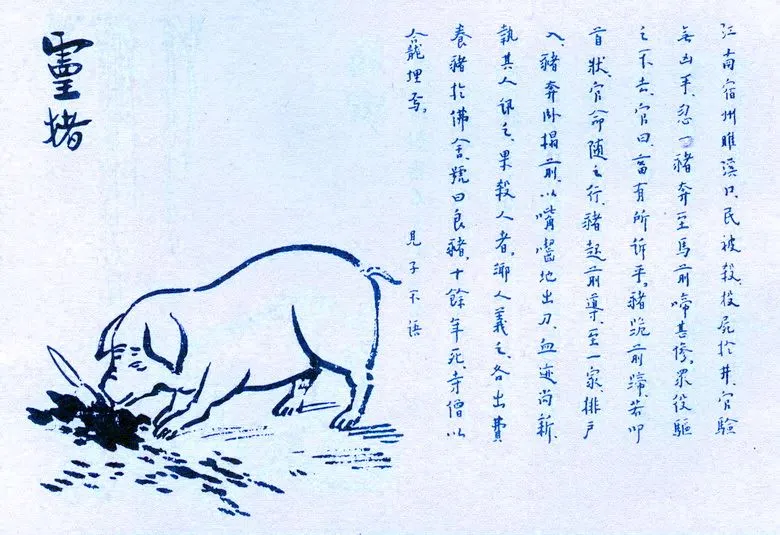 江南宿州睢溪口、民被殺、投屍於井、官驗
無凶手、忽一豬奔至馬前啼甚慘、眾役驅
之不去、官曰、畜有所訴乎、豬跪前蹄、若叩
首狀、官命隨之行、豬起前導、至一家、排戶
入、豬奔卧榻前、以嘴嚙地出刀、血迹尚新、
執其人訊之、果殺人者、鄉人義之、各出費
養豬於佛舍、號曰良豬、十餘年死、寺僧以
龕埋焉。 見子不語
靈猪